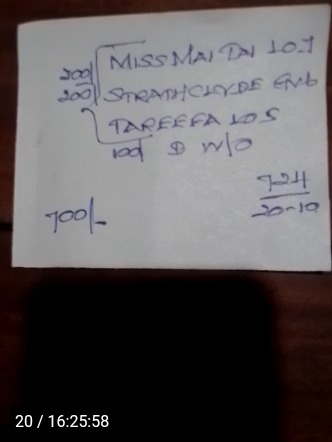 MISS MAI TAI 10.7
200/
200/ STRATHCLYDE EN6
TAREEFA 10 5
100/ D W/O
724
20-10
700/-
20 / 16:25:58